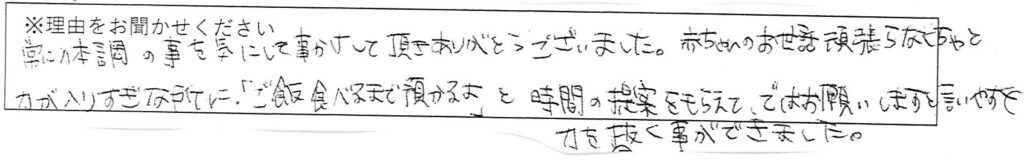 ※理由をお聞かせください
常に体調の事を気にして声かけして頂きありがとうございました。赤ちゃんのお世話頑張らなくちゃと
力が入りすぎな所に、「ご飯食べるまで預かるよ」と時間の提案をもらえて、ではお願いしますと言いやすく
力を抜く事ができました。